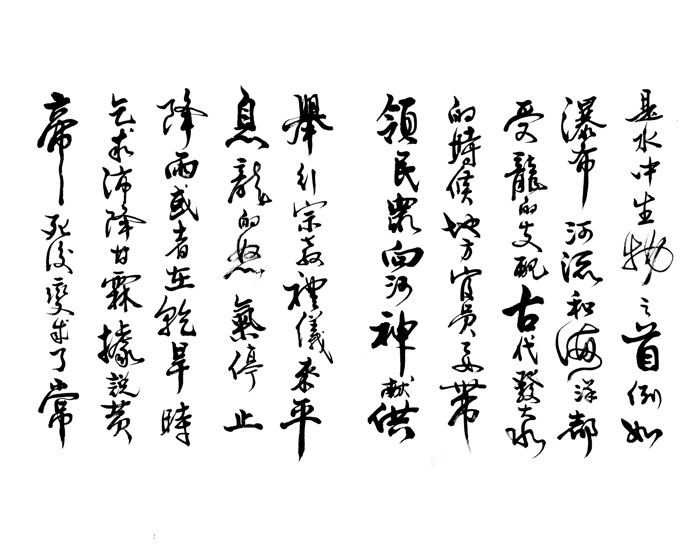 是水中生物之首例如
瀑布河流和海洋都
受龍的支配古代發大水
的時候地方官員要帶
領民眾向河神献供
舉行宗教禮儀來平
息龍的怒氣停止
降雨或者在乾旱時
乞求沛降甘霖據說黄
帝死後變成了常